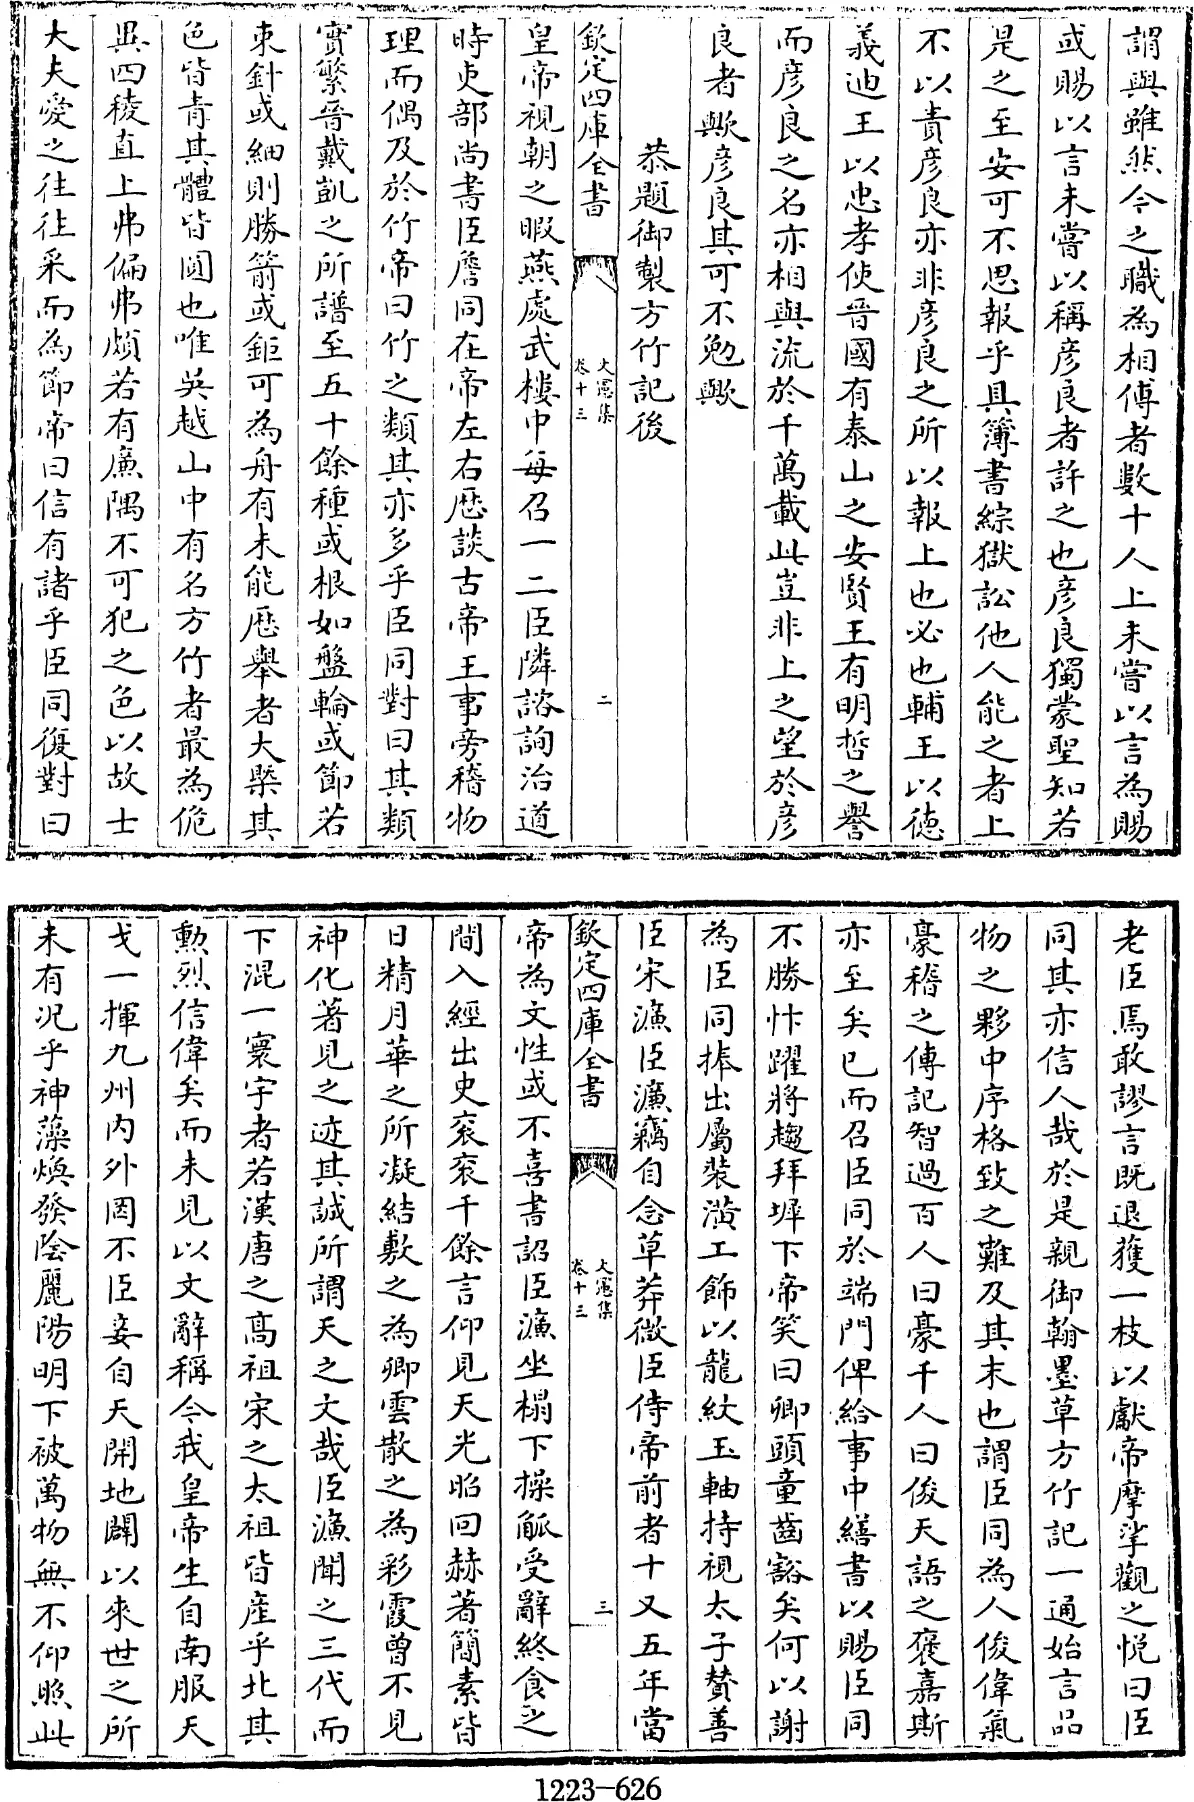 謂與雖然今之職為相傅者數十人上未嘗以言為賜
或賜以言未嘗以稱彥良者許之也彥良獨蒙聖知若
是之至安可不思報乎具簿書綜獄訟他人能之者上
不以責彥良亦非彥良之所以報上也必也輔王以德
義迪王以忠孝使晉國有泰山之安賢王有明哲之譽
而彥良之名亦相與流於千萬載此豈非上之望於彥
良者歟彥良其可不勉歟
恭題御製方竹記後
欽定四庫全書
文憲集
卷十三
二
皇帝視朝之暇燕處武樓中每召一二臣隣諮詢治道
時吏部尚書臣詹同在帝左右歷談古帝王事旁稽物
理而偶及於竹帝曰竹之類其亦多乎臣同對曰其類
實繁晉戴凱之所譜至五十餘種或根如盤輪或節若
束針或細則勝箭或鉅可為舟有未能歷舉者大槩其
色皆青其體皆圓也唯吳越山中有名方竹者最為佹
異四稜直上弗偏弗頗若有廉隅不可犯之色以故士
大夫愛之往往采而為節帝曰信有諸乎臣同復對曰
老臣焉敢謬言既退獲一枝以獻帝摩挲觀之悅曰臣
同其亦信人哉於是親御翰墨草方竹記一通始言品
物之夥中序格致之難及其末也謂臣同為人俊偉氣
豪稽之傳記智過百人曰豪千人曰俊天語之褒嘉斯
亦至矣已而召臣同於端門俾給事中繕書以賜臣同
不勝忭躍將趨拜墀下帝笑曰卿頭童齒豁矣何以謝
為臣同捧出屬裝潢工飾以龍紋玉軸持視太子贊善
臣宋濂臣濂竊自念草莽微臣侍帝前者十又五年當
欽定四庫全書
文憲集
卷十三
三
帝為文性或不喜書詔臣濂坐榻下操觚受辭終食之
間入經出史衮衮千餘言仰見天光昭回赫著簡素皆
日精月華之所凝結敷之為卿雲散之為彩霞曾不見
神化著見之迹其誠所謂天之文哉臣濂聞之三代而
下混一寰宇者若漢唐之髙祖宋之太祖皆産乎北其
勲烈信偉矣而未見以文辭稱今我皇帝生自南服天
戈一揮九州内外罔不臣妾自天開地闢以來世之所
未有況乎神藻煥發陰麗陽明下被萬物無不仰照此
1223-626